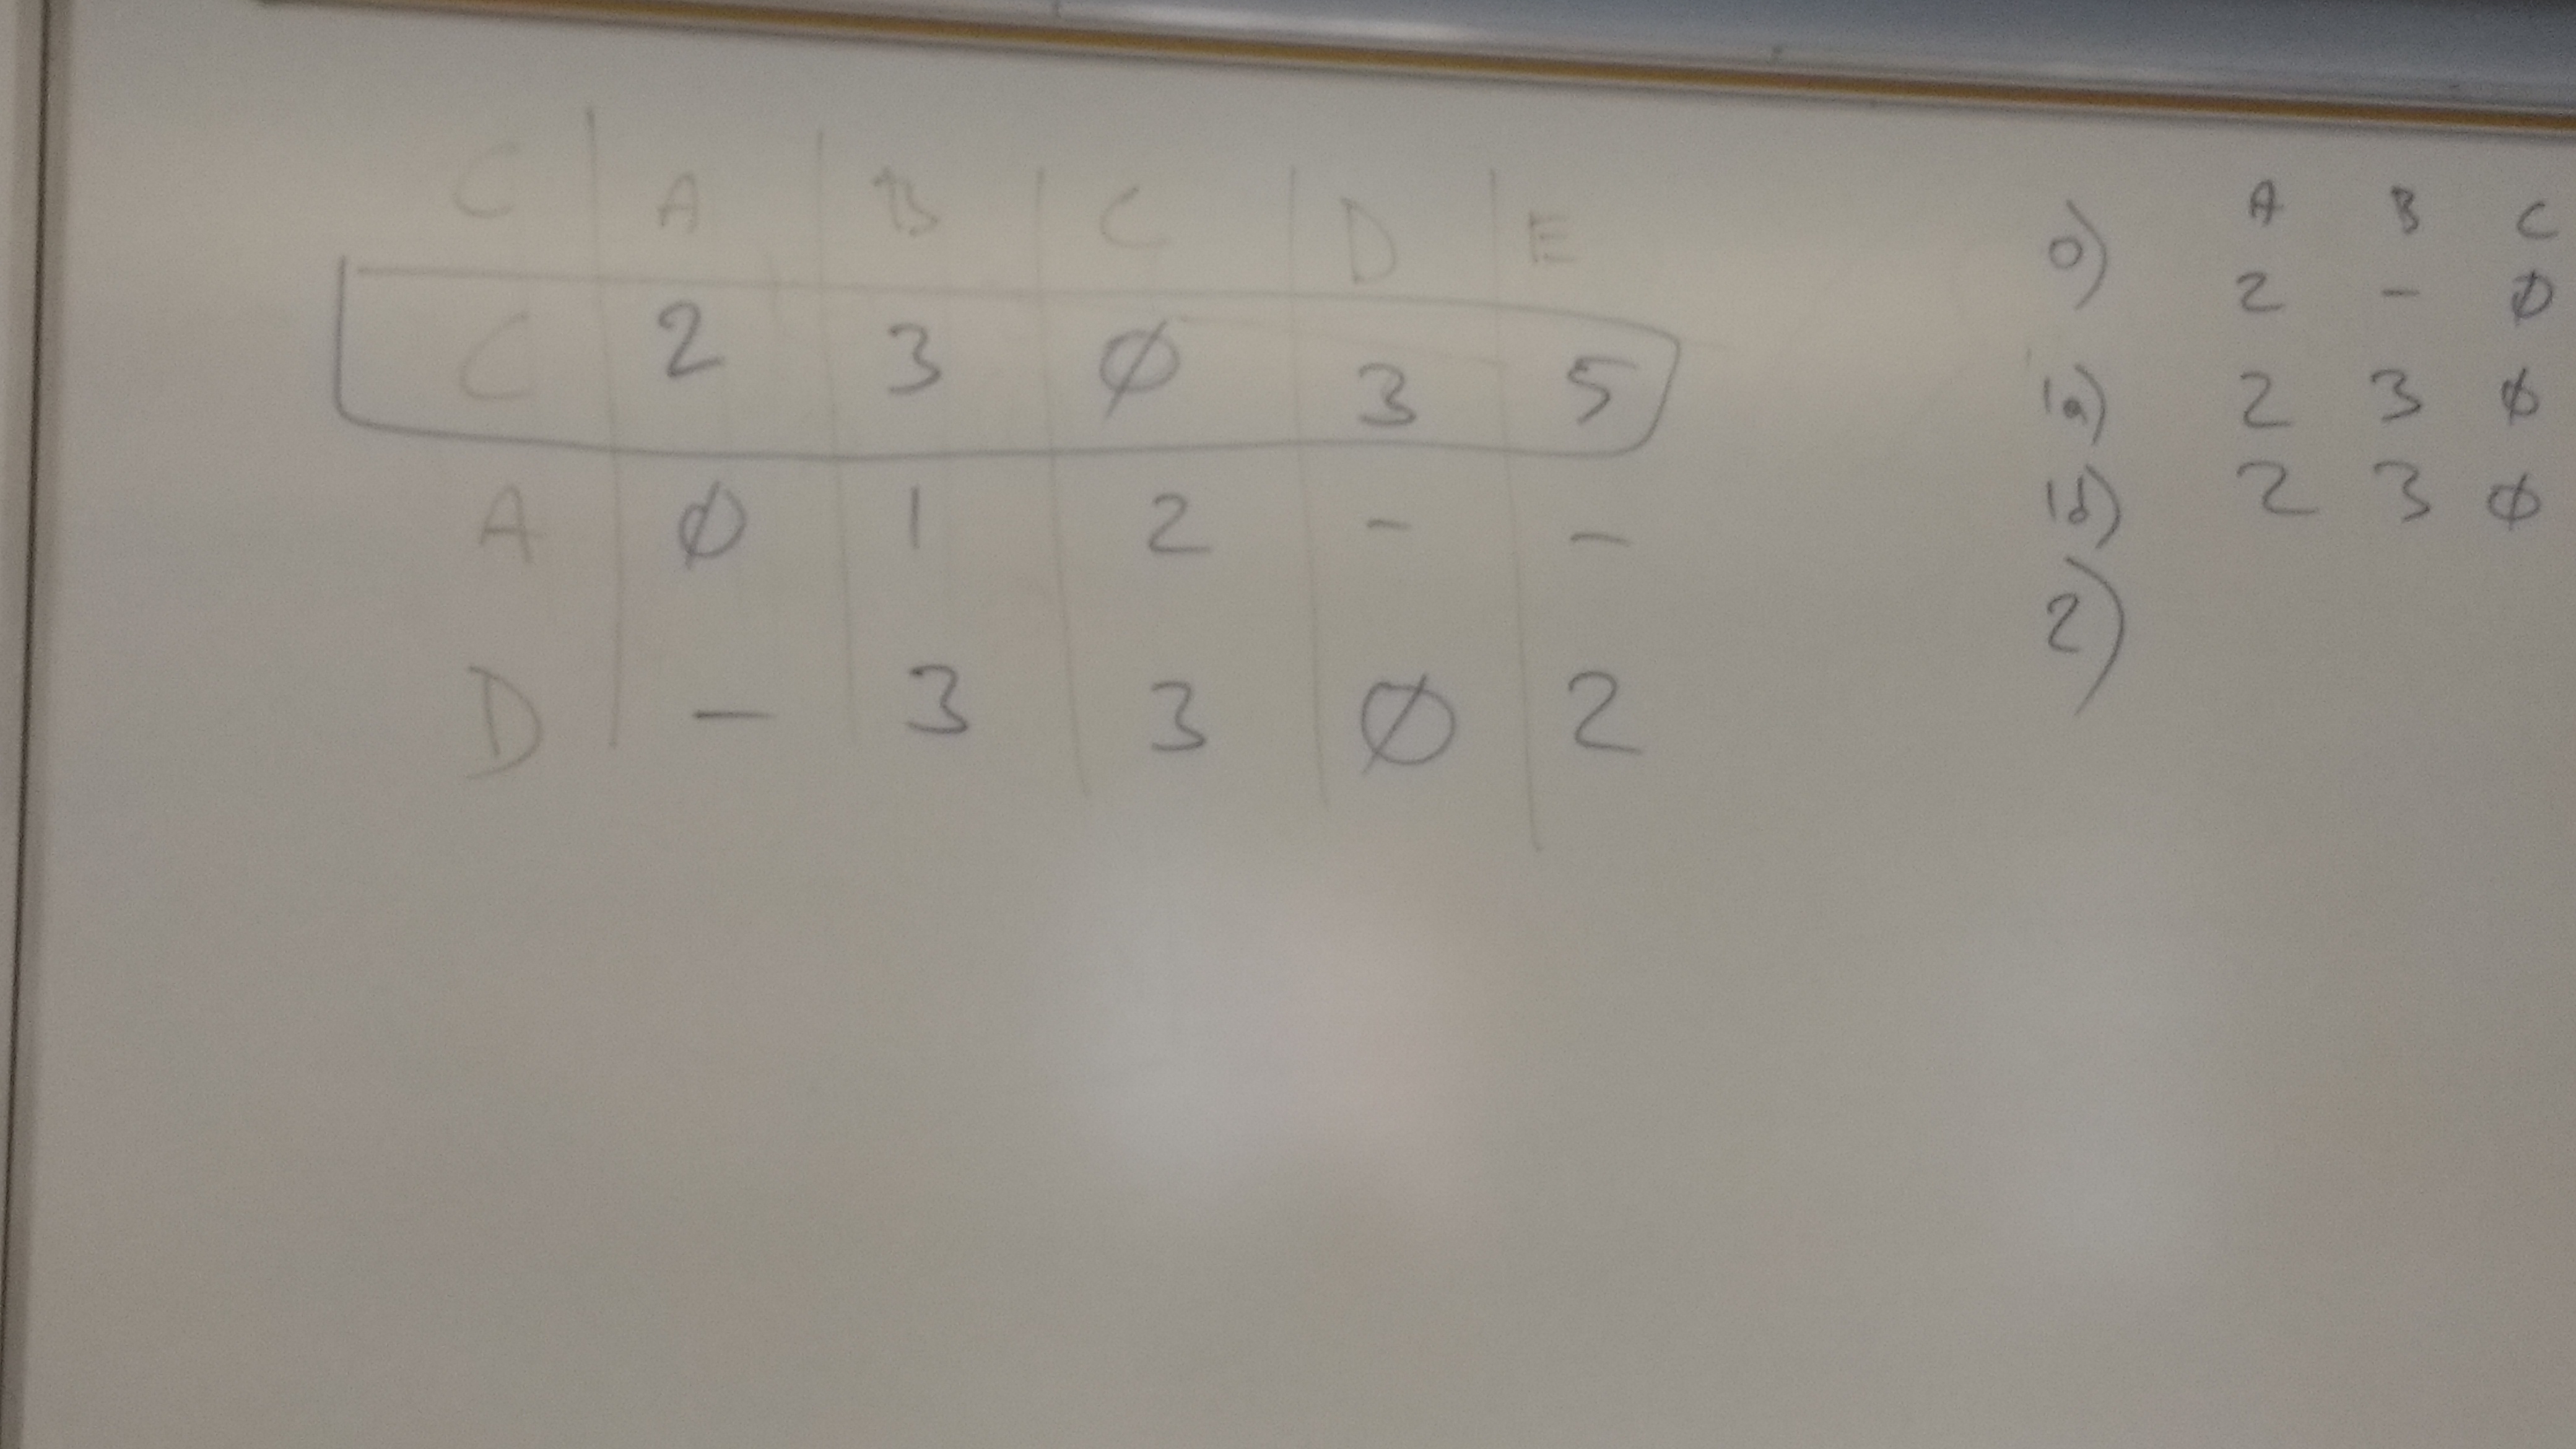 C A B C D E
C 2 3 Ø 3 5
A Ø 1 2 - -
D - 3 3 Ø 2
0) A B C
2 - Ø
1a) 2 3 Ø
1b) 2 3 Ø
2)